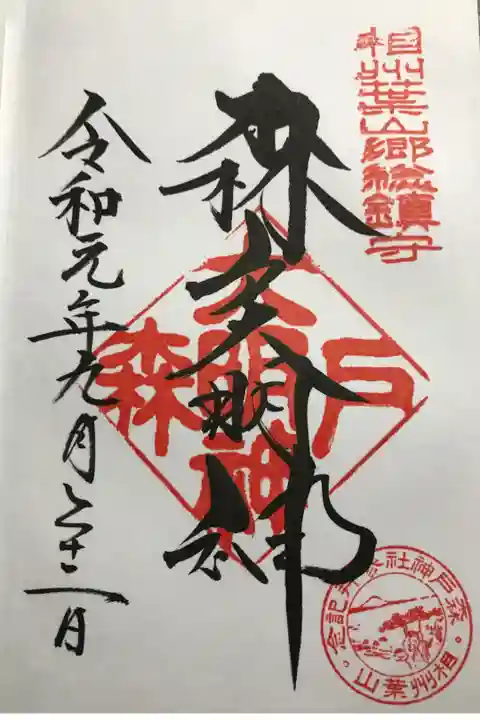 相州葉山郷総鎮守
森戸
大明神
令和元年九月二十二日
森戸神社参拝記念
相州葉山